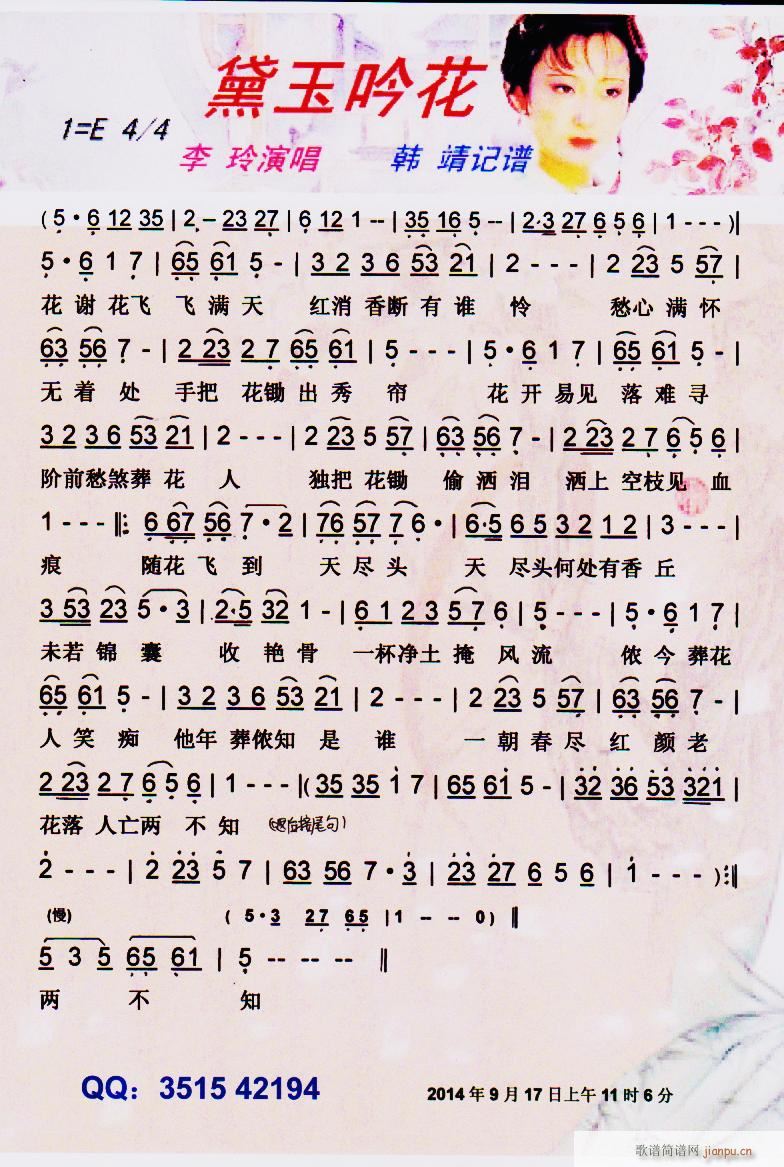 黛玉吟花
1=E 4/4
李 玲演唱 韩 靖记谱
(5·6 12 35|2·–23 27|6 12 1--|35 16 5--|2·3 27 6 5 6|1---)|
5·6 1 7|65 61 5-|3 2 3 6 53 21|2---|2 23 5 57|
花谢花飞 飞满天 红消香断有谁 怜 愁心满怀
63 56 7-|2 23 2 7 65 61|5---|5·6 1 7|65 61 5-|
无着 处 手把 花锄出秀 帘 花开易见 落难寻
3 2 3 6 53 21|2---|2 23 5 57|63 56 7-|2 23 2 7 6 5 6|
阶前愁煞葬 花 人 独把 花锄 偷洒泪 洒上 空枝见 血
1---‖:6 67 56 7·2|76 57 7 6·|6·5 6 5 3 2 1 2|3---|
痕 随花 飞 到 天 尽 头 天 尽头何处有香 丘
3 53 23 5·3|2·5 32 1-|6 1 2 3 5 7 6|5---|5·6 1 7|
未若 锦 囊 收 艳 骨 一杯净土 掩 风 流 侬今 葬花
65 61 5-|3 2 3 6 53 21|2---|2 23 5 57|63 56 7-|
人 笑 痴 他年 葬侬知 是 谁 一 朝 春 尽 红 颜 老
2 23 2 7 6 5 6|1---|(35 35 1 7|65 61 5-|32 36 53 321|
花落 人亡两 不 知
2---|2 23 5 7|63 56 7·3|23 27 6 5 6|1---):‖
(慢) (5·3 27 65|1 -- -- 0)‖
5 3 5 65 61|5 -- -- --‖
两 不 知
QQ：3515 42194 2014 年 9 月 17 日上午 11 时 6 分
歌谱简谱网
jianpu.cn